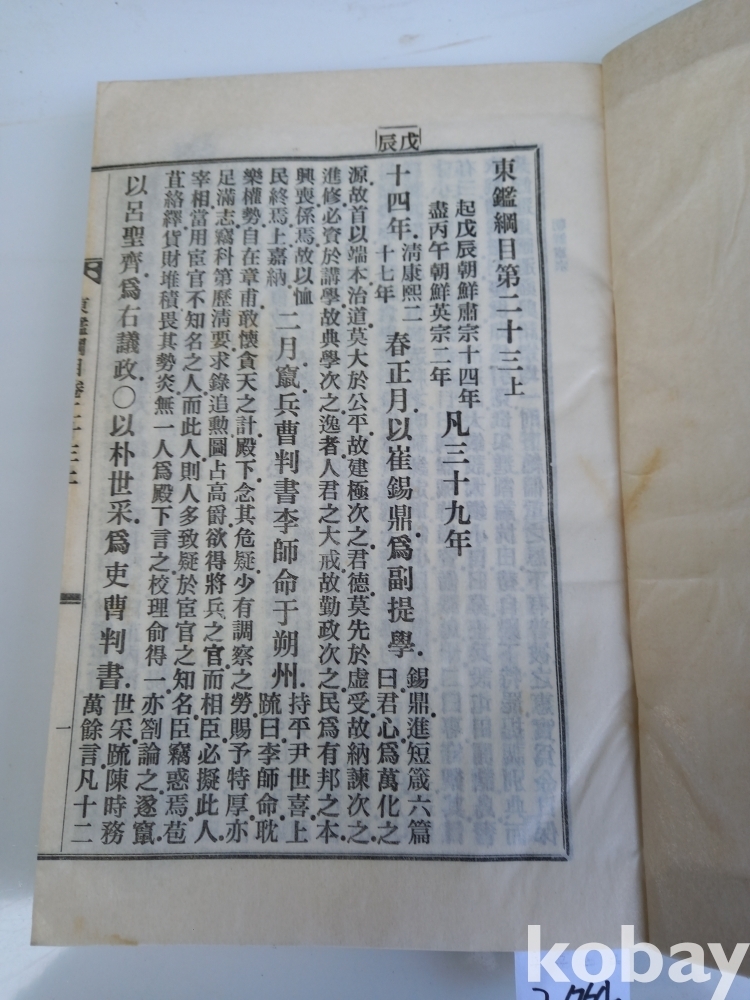 戊辰
東鑑綱目第二十三上
起戊辰朝鮮肅宗十四年
盡丙午朝鮮英宗二年
凡三十九年
十四年
清康熙二
十七年
春正月以崔錫鼎爲副提學
錫鼎進短箴六篇
曰君心爲萬化之
源故首以端本治道莫大於公平故建極次之君德莫先於虛受故納諫次之
進修必資於講學故典學次之逸者人君之大戒故勤政次之民爲有邦之本
興喪係焉故以恤
民終焉上嘉納
二月竄兵曹判書李師命于朔州
持平尹世喜上
䟽曰李師命耽
樂權勢自在章甫敢懷貪天之計殿下念其危疑少有調察之勞賜予特厚亦
足滿志竊科第歷清要求錄追勳圖占高爵欲得將兵之官而相臣必擬此人
宰相當用宦官不知名之人而此人則人多致疑於宦官之知名臣竊惑焉苞
苴絡繹貨財堆積畏其勢炎無一人爲殿下言之校理俞得一亦劄論之遂竄
以呂聖齊爲右議政〇以朴世采爲吏曹判書
世采䟽陳時務
萬餘言凡十二
東鑑綱目卷二十三上
一
kobay